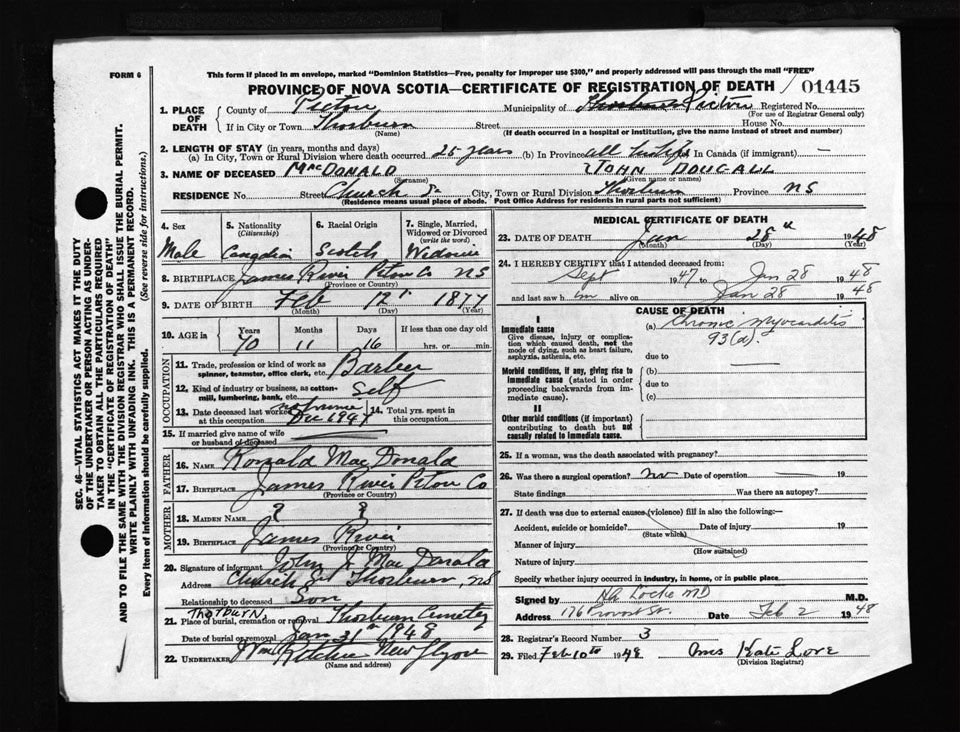 FORM 6
This form if placed in an envelope, marked "Dominion Statistics—Free, penalty for improper use $300," and properly addressed will pass through the mail "FREE"
PROVINCE OF NOVA SCOTIA—CERTIFICATE OF REGISTRATION OF DEATH 01445
1. PLACE OF DEATH County of Pictou Municipality of Pictou Registered No.
(For use of Registrar General only)
If in City or Town Thorburn Street House No.
(Name) (If death occurred in a hospital or institution, give the name instead of street and number)
2. LENGTH OF STAY (in years, months and days)
(a) In City, Town or Rural Division where death occurred 25 years (b) In Province all his life In Canada (if immigrant) —
3. NAME OF DECEASED MacDONALD JOHN DOUGALL
(Surname) (Given name or names)
RESIDENCE No. Street Church St City, Town or Rural Division Thorburn Province NS
(Residence means usual place of abode. Post Office Address for residents in rural parts not sufficient)
4. Sex 5. Nationality (Citizenship) 6. Racial Origin 7. Single, Married, Widowed or Divorced (write the word)
Male Canadian Scotch Widower
8. BIRTHPLACE James River Pictou Co NS
(Province or Country)
9. DATE OF BIRTH Feb 12 1877
(Month) (Day) (Year)
10. AGE in Years Months Days If less than one day old
70 11 16 hrs. or min.
OCCUPATION
11. Trade, profession or kind of work as spinner, teamster, office clerk, etc. Barber
12. Kind of industry or business, as cotton-mill, lumbering, bank, etc. Self
13. Date deceased last worked at this occupation Dec 1947 14. Total yrs. spent in this occupation
15. If married give name of wife or husband of deceased
FATHER
16. NAME Ronald MacDonald
17. BIRTHPLACE James River Pictou Co
(Province or Country)
MOTHER
18. MAIDEN NAME ? ?
19. BIRTHPLACE James River
(Province or Country)
20. Signature of informant John J MacDonald
Address Church St Thorburn, NS
Relationship to deceased Son
THORBURN
21. Place of burial, cremation or removal Thorburn Cemetery
Date of burial or removal Jan 31st 1948
22. UNDERTAKER Wm Ritchie New Glasgow
(Name and address)
MEDICAL CERTIFICATE OF DEATH
23. DATE OF DEATH Jan 28th 1948
(Month) (Day) (Year)
24. I HEREBY CERTIFY that I attended deceased from:
Sept 1947 to Jan 28 1948
and last saw him alive on Jan 28 1948
CAUSE OF DEATH
I
Immediate cause (a) Chronic Myocarditis
Give disease, injury or complication which caused death, not the mode of dying, such as heart failure, asphyxia, asthenia, etc. 93(d).
due to
Morbid conditions, if any, giving rise to immediate cause (stated in order proceeding backwards from immediate cause). (b)
due to
(c)
II
Other morbid conditions (if important) contributing to death but not causally related to immediate cause.
25. If a woman, was the death associated with pregnancy?
26. Was there a surgical operation? no Date of operation 19
State findings Was there an autopsy?
27. If death was due to external causes (violence) fill in also the following:—
Accident, suicide or homicide? Date of injury 19
(State which)
Manner of injury
(How sustained)
Nature of injury
Specify whether injury occurred in industry, in home, or in public place
Signed by Locke MD M.D.
Address 176 Provost St. Date Feb 2 1948
28. Registrar's Record Number 3
29. Filed Feb 10th 1948 Mrs Kate Love
(Division Registrar)
SEC. 46—VITAL STATISTICS ACT MAKES IT THE DUTY
OF THE UNDERTAKER OR PERSON ACTING AS UNDER-
TAKER TO OBTAIN ALL THE PARTICULARS REQUIRED
IN THE "CERTIFICATE OF REGISTRATION OF DEATH"
AND TO FILE THE SAME WITH THE DIVISION REGISTRAR WHO SHALL ISSUE THE BURIAL PERMIT.
WRITE PLAINLY WITH UNFADING INK. THIS IS A PERMANENT RECORD.
Every item of information should be carefully supplied. (See reverse side for instructions.)